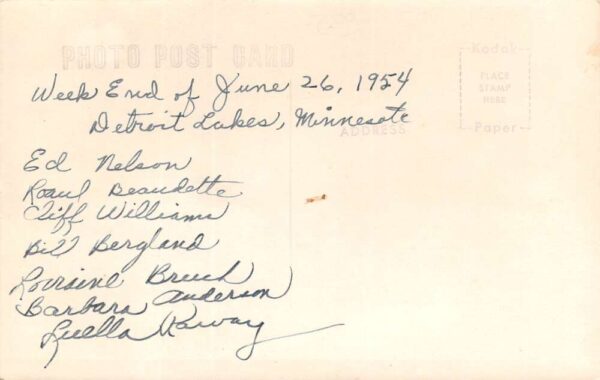 PHOTO POST CARD
Week End of June 26, 1954
Detroit Lakes, Minnesota
ADDRESS
Kodak
PLACE
STAMP
HERE
Paper
Ed Nelson
Roaul Beaudette
Cliff Williams
Bill Bergland
Lorraine Bruch
Barbara Anderson
Luella